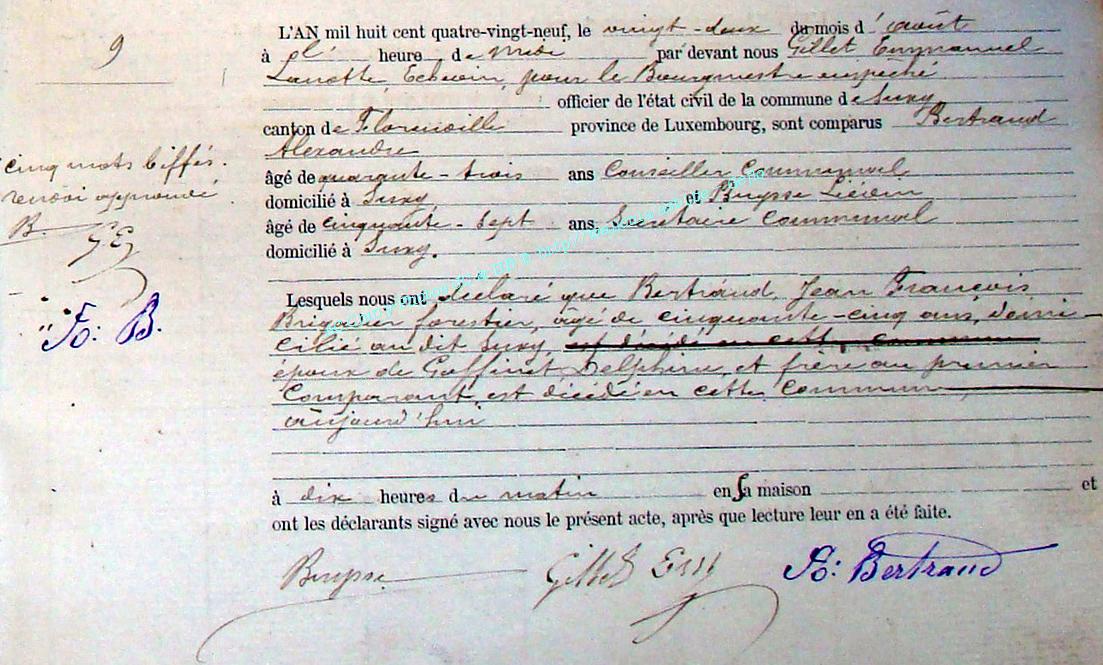 9
L'AN mil huit cent quatre-vingt-neuf, le vingt-deux du mois d'août
à heure de midi par devant nous Gillet Emmanuel
Echevin, pour le Bourgmestre empêché
officier de l'état civil de la commune de Suxy
canton de Florenville province de Luxembourg, sont comparus Bertrand
Alexandre
âgé de quarante-trois ans Conseiller Communal
domicilié à Suxy et Buysse Liévin
âgé de cinquante-sept ans Secrétaire Communal
domicilié à Suxy.
Lesquels nous ont déclaré que Bertrand, Jean François
Brigadier forestier, âgé de cinquante-cinq ans, domi-
cilié au dit Suxy est décédé en cette commune
époux de Goffinet Delphine, et frère au premier
Comparant, est décédé en cette commune,
aujourd'hui
à dix heures du matin en sa maison et
ont les déclarants signé avec nous le présent acte, après que lecture leur en a été faite.
Buysse Gillet Em Bertrand
cinq mots biffés.
renvoi approuvé
B.
GE
B.